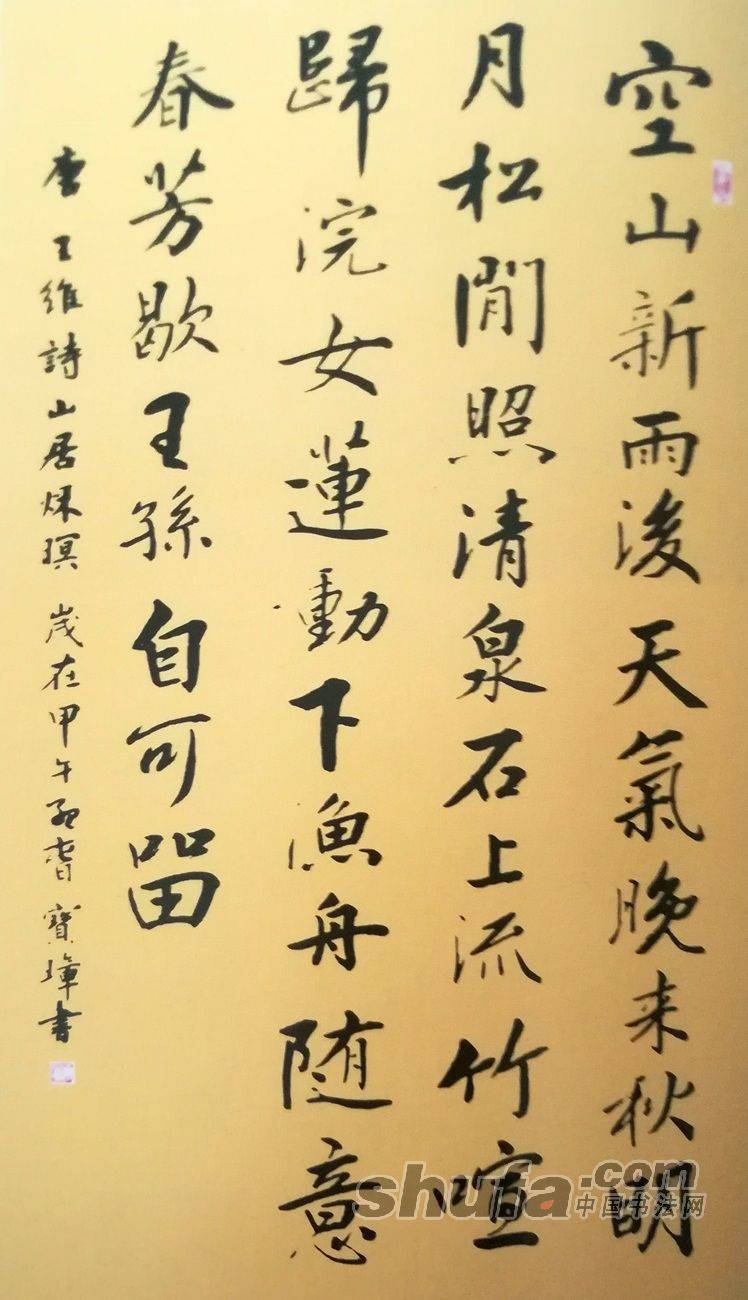 空山新雨後天氣晚来秋朙
月松閒照清泉石上流竹喧
歸浣女蓮動下漁舟随意
春芳歇王孫自可留
唐王維詩山居秌暝 歲在甲午 寶書
shufa.com
中国书法网